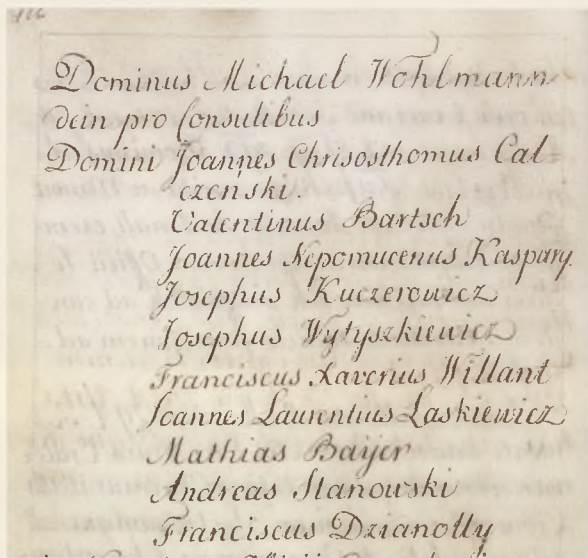 Dominus Michael Wohlmann
dein pro Consulibus
Domini Joannes Chrisosthomus Cal=
czeński.
Valentinus Bartsch
Joannes Nepomucenus Kaspary.
Josephus Kuczerowicz
Josephus Wytyszkiewicz
Franciscus Xaverius Willant
Joannes Laurentius Laskiewicz
Mathias Bayer
Andreas Stanowski
Franciscus Dzianotty